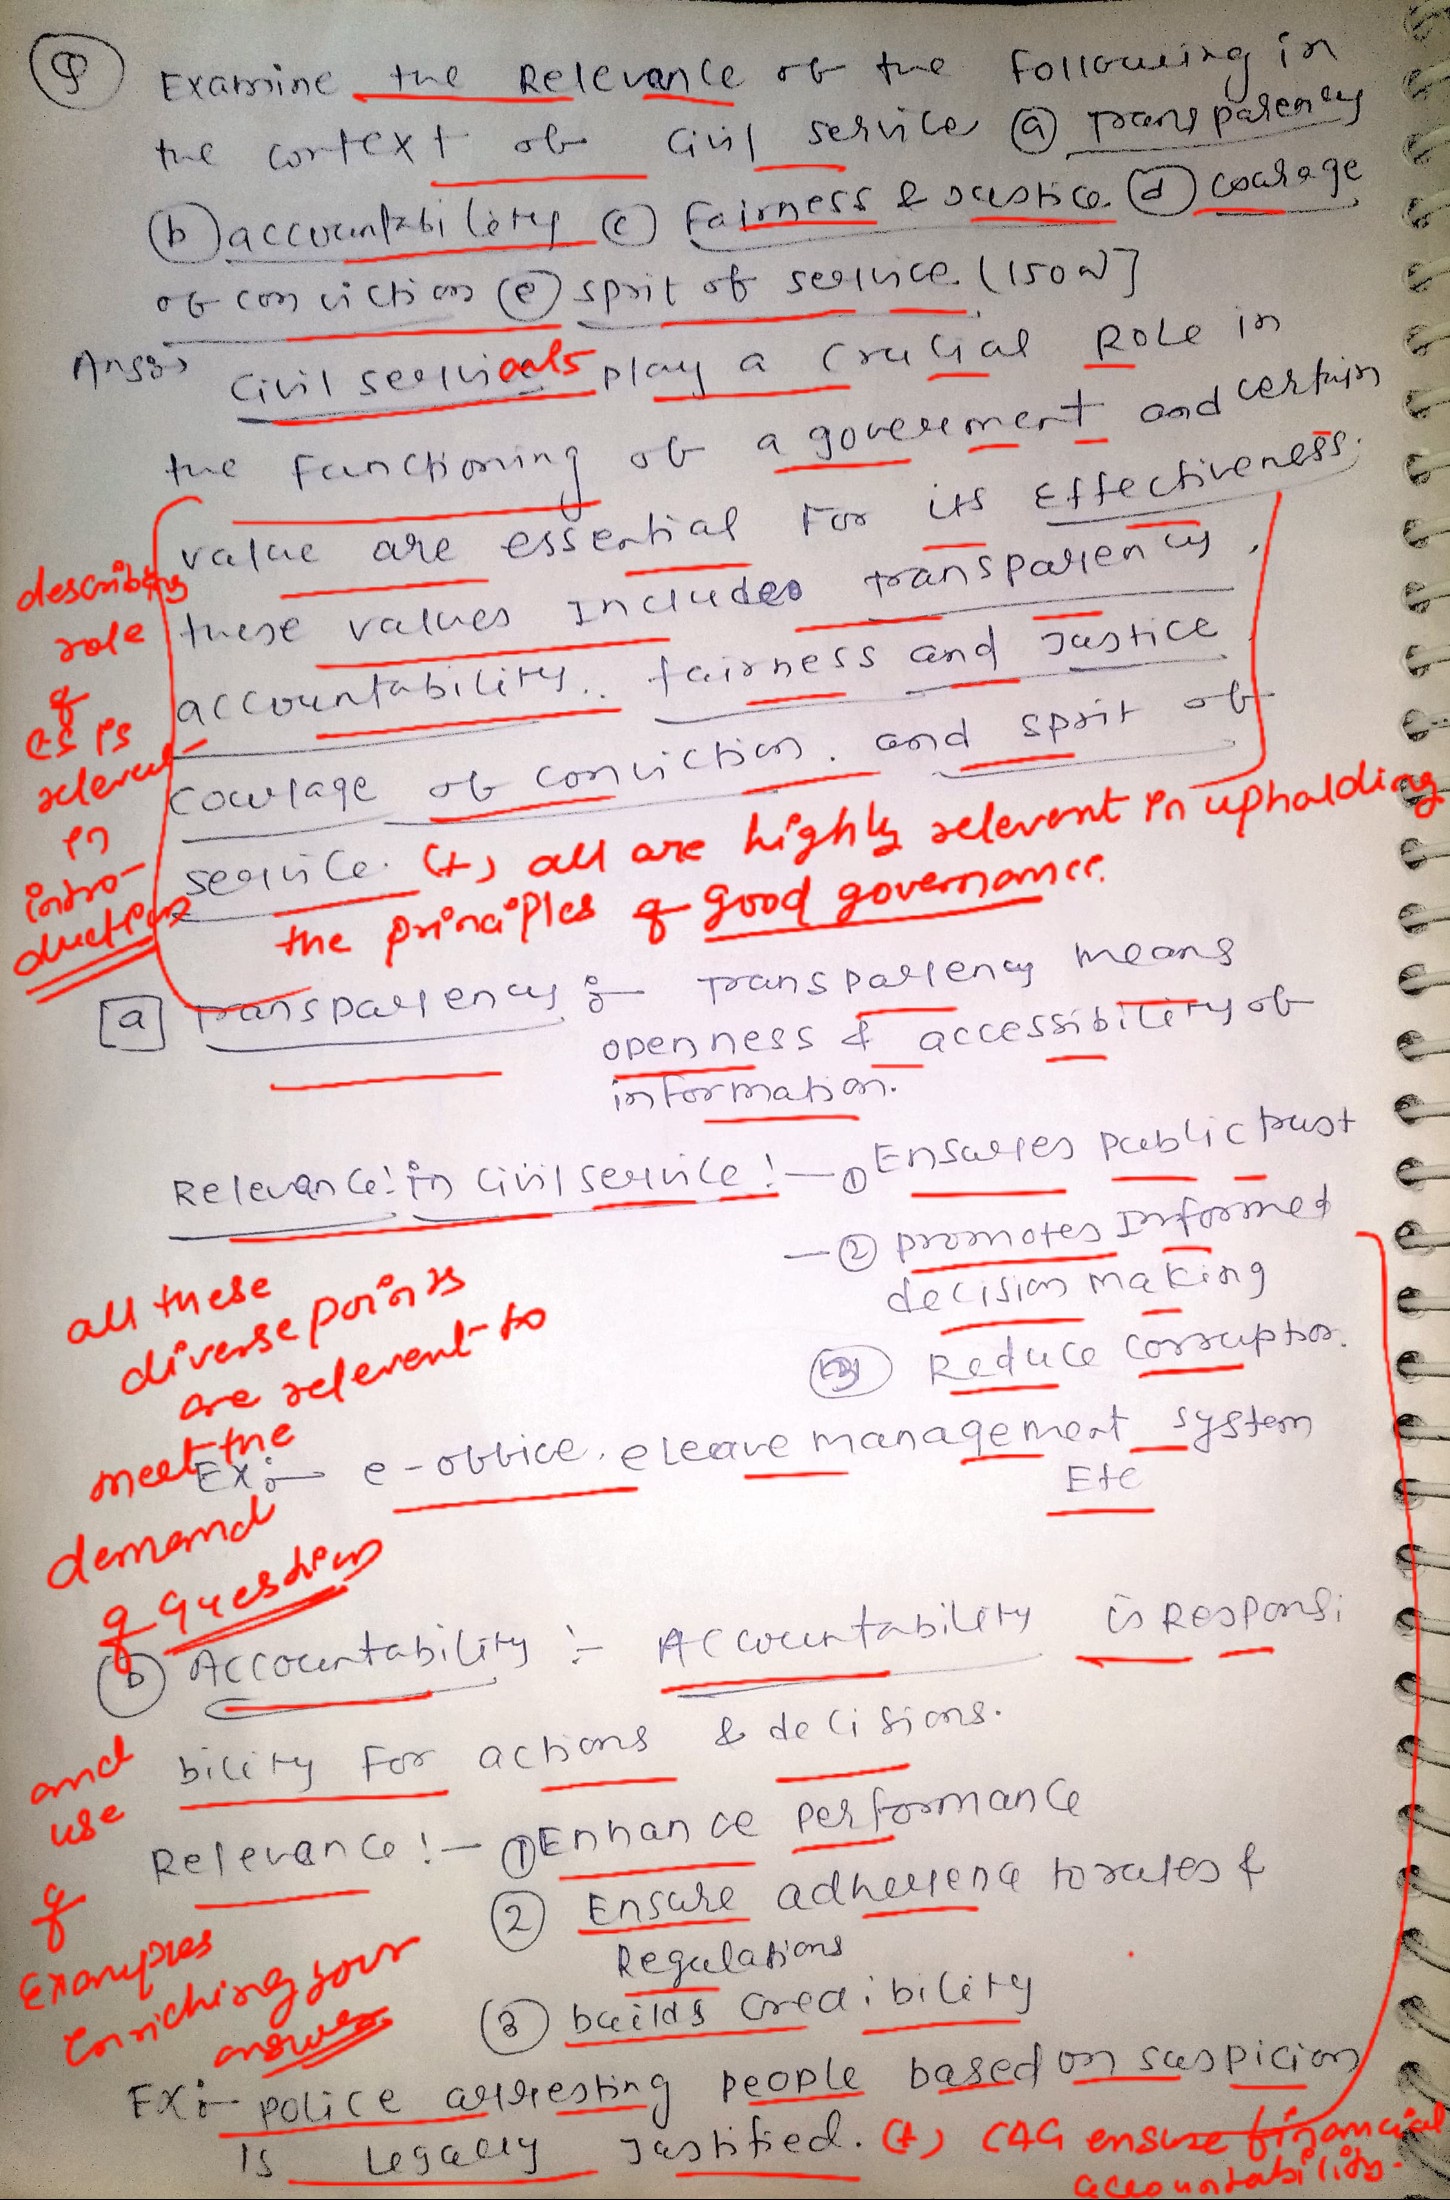 Q Examine the Relevance of the following in
the context of Civil service (a) Transparency
(b) accountability (c) Fairness & Justice (d) courage
of conviction (e) sprit of service. (150W]
Ans:- Civil servicants play a crucial Role in
the functioning of a goverement and certain
value are essential For its Effectiveness.
these values Includes transparency,
accountability.. fairness and Justice,
courage of conviction. and sprit of
service. (+) all are highly relevant in upholding
the principles of good governance.
describing
role
of
CS is
relevant
in
intro-
duction
[a] Transparency :- Transparency means
openness & accessibility of
information.
Relevance: in Civil service :- ① Ensures public trust
- ② promotes Informed
decision making
③ Reduce corruption.
Ex:- e-office, eleave management system
Etc
all these
diverse points
are relevent to
meet the
demand
of question
(b) Accountability :- Accountability is Responsi
bility For actions & decisions.
Relevance :- ① Enhance performance
② Ensure adherence to rules &
Regulations
③ builds credibility
and
use
of
Examples
enriching your
answer.
Ex:- police arresting people based on suspicion
Is Legally Justified. (+) CAG ensure financial
accountability.